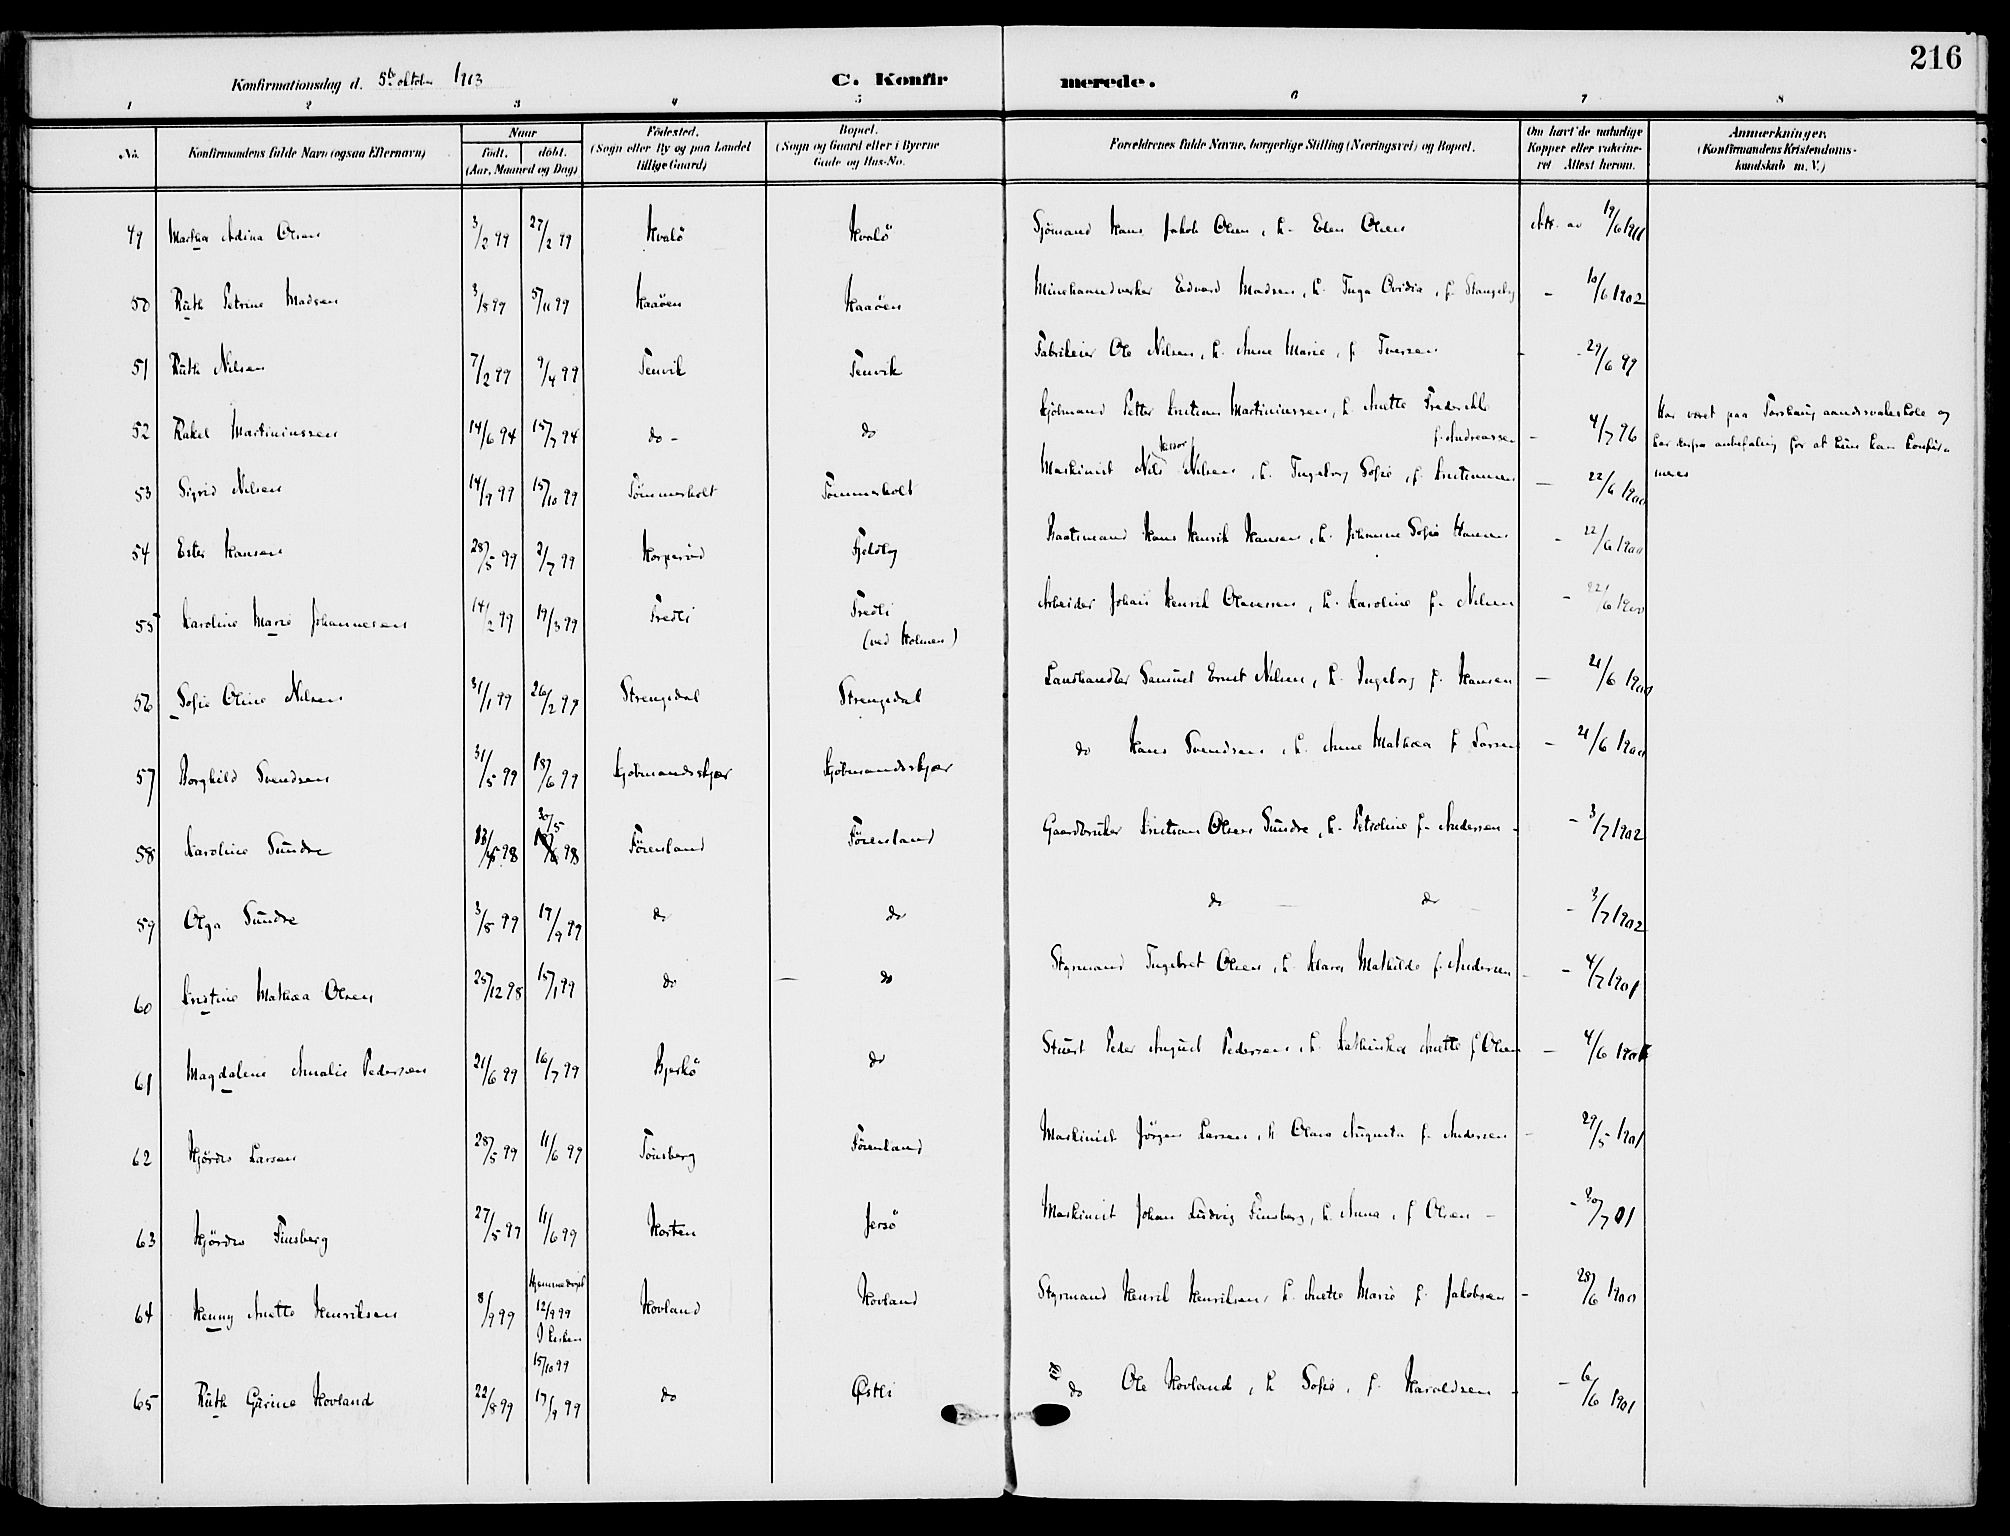 216
Konfirmationsdag d. 5te oktober 1913
C. Konfirmerede.
1 2 3 4 5 6 7 8
No.
Konfirmandens fulde Navn (ogsaa Efternavn)
Naar
födt. döbt.
(Aar, Maaned og Dag)
Födested.
(Sogn eller By og paa Landet
tillige Gaard)
Bopæl.
(Sogn og Gaard eller i Byerne
Gade og Hus-No.
Forældrenes fulde Navne, borgerlige Stilling (Næringsvei) og Bopæl.
Om havt de naturlige
Kopper eller vakcine-
ret Attest herom.
Anmærkninger.
(Konfirmandens Kristendoms-
kundskab m. V.)
49 Martha Adina Olsen 3/2 99 27/2 99 Hvalö Hvalö Sjömand Hans Jakob Olsen, h. Elen Olsen Att. av 19/6 1911
50 Ruth Petrine Madsen 3/8 99 5/11 99 Haaöen Haaöen Edvard Madsen, h. Inga Ovidia, f. Stangeby - 10/6 1902
51 Ruth Nilsen 7/2 99 9/4 99 Tenvik Tenvik Fabrikeier Ole Nilsen, h. Anne Marie, f. Iversen - 29/6 99
52 Rakel Martiniussen 14/6 94 15/7 94 do - do Kjöbmand Petter Kristian Martiniussen, h. Anette Frederikke
f. Andreassen - 4/7 96
Har været paa aandssvakeskole og
har derfra anbefaling for at hun kan konfir-
meres
53 Sigrid Nilsen 14/9 99 15/10 99 Tömmerholt Tömmerholt Maskinist Nils Nilsen, h. Ingeborg Sofie, f. Kristiansen - 22/6 1900
54 Ester Hansen 28/5 99 2/7 99 Fjeldby Baatsmand Hans Henrik Hansen, h. Johanne Sofie Hansen - 22/6 1900
55 Karoline Marie Johannesen 14/2 99 19/3 99 Fredli Fredli
(ved Holmen)
Arbeider Johan Henrik h. Karoline f. Nilsen - 22/6 1900
56 Sofie Oline Nilsen 31/1 99 26/2 99 Strengsdal Strengsdal Landhandler Samuel Ernst Nilsen, h. Ingeborg f. Hansen - 21/6 1900
57 Borghild Svendsen 31/5 99 18/6 99 Kjöbmandsskjær Kjöbmandsskjær do Hans Svendsen, h. Anne Mathea f. Larsen - 21/6 1900
58 Karoline Sundre 98 30/5 98 Förensland Förensland Gaardbruker Kristian Olsen Sundre, h. Petroline f. Andersen - 3/7 1902
59 Olga Sundre 3/8 99 17/9 99 do do do do - 3/7 1902
60 Kristine Mathea Olsen 25/12 98 15/1 99 do - do Styrmand Ingebret Olsen, h. Klara Mathilde f. Andersen - 4/7 1901
61 Magdalene Amalie Pedersen 21/6 99 16/7 99 Bjerkö do Stuert Peder August Pedersen, h. Kathinka Anette f. Olsen - 4/6
62 Hjördis Larsen 28/5 99 11/6 99 Tönsberg Förensland Maskinist Jörgen Larsen, h. Olava Augusta f. Andersen - 29/5 1901
63 Hjördis Finsberg 27/5 99 11/6 99 Horten Jersö Maskinist Johan Ludvig Finsberg, h. Anna, f. Olsen - 30/7 01
64 Henny Anette Henriksen 8/9 99 Hjemmedöpt
12/9 99
I kirken
15/10 99
Hovland Hovland Styrmand Henrik Henriksen, h. Anette Marie f. Jakobsen - 28/6 1900
65 Ruth Gurine Hovland 22/8 99 17/9 99 do Østli do Ole Hovland, h. Sofie, f. Haraldsen - 6/6 1901